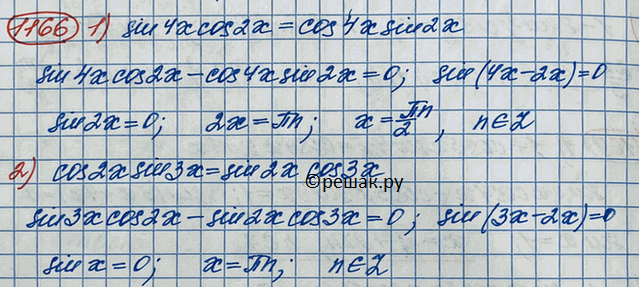 1166 1) sin4xcos2x=cos4xsin2x
sin4xcos2x-cos4xsin2x=0; sin(4x-2x)=0
sin2x=0; 2x=πn; x=πn/2, n∈Z
2) cos2xsin3x=sin2xcos3x
©решак.ру
sin3xcos2x-sin2xcos3x=0; sin(3x-2x)=0
sinx=0; x=πn; n∈Z